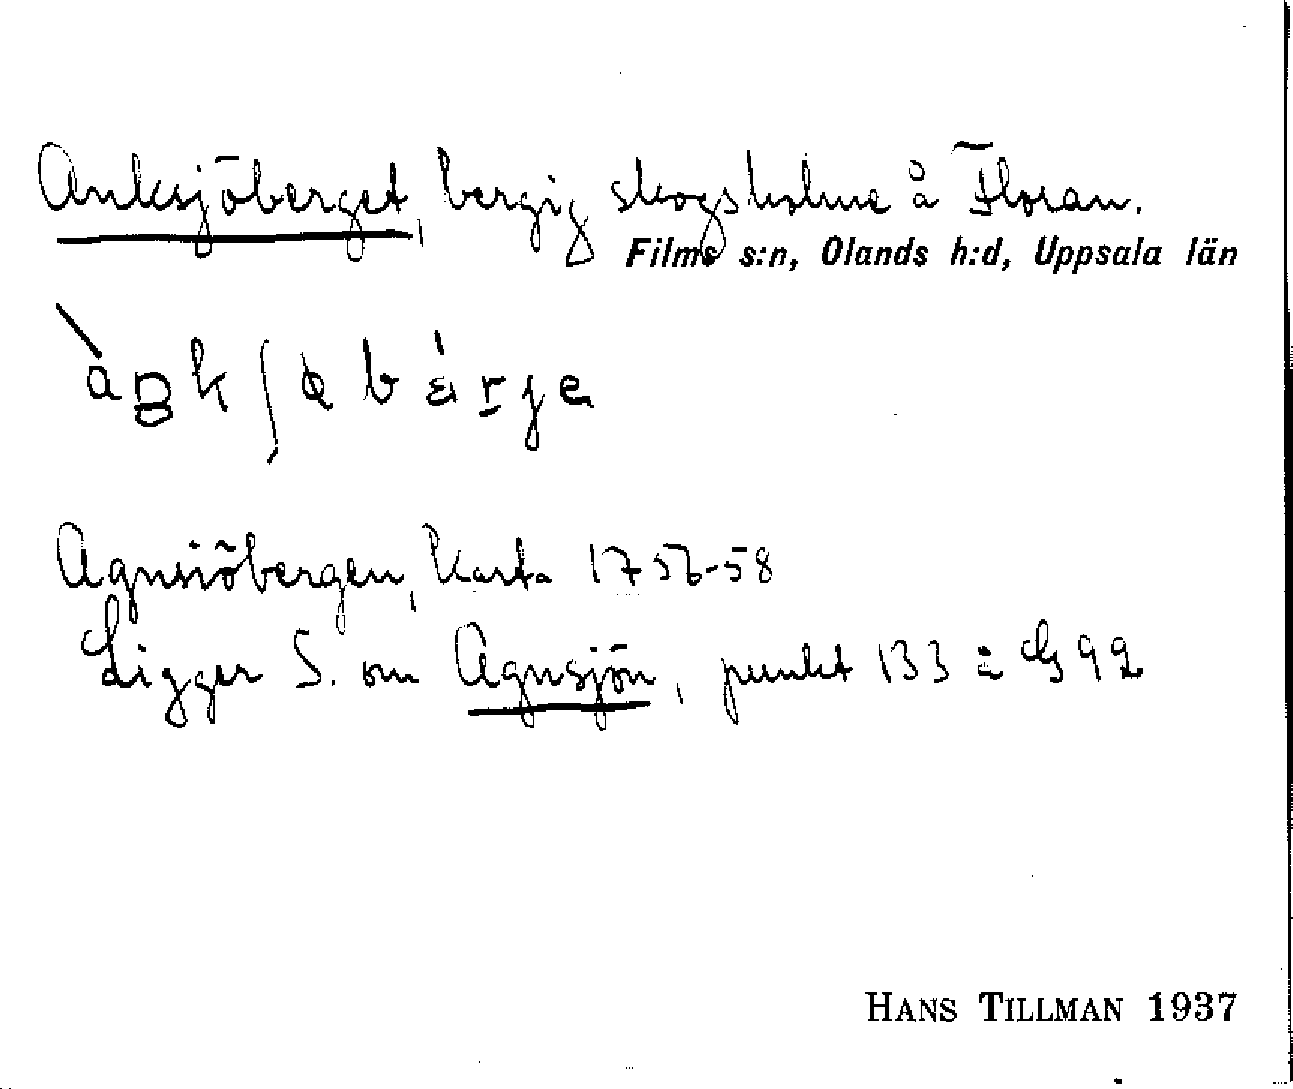 Anksjöberget, bergig skogsholme å Floran.
Films s:n, Olands h:d, Uppsala län
Agnsiöbergen, karta 1756-58
Ligger S. om Agnsjön, punkt 133 å G 92
HANS TILLMAN 1937